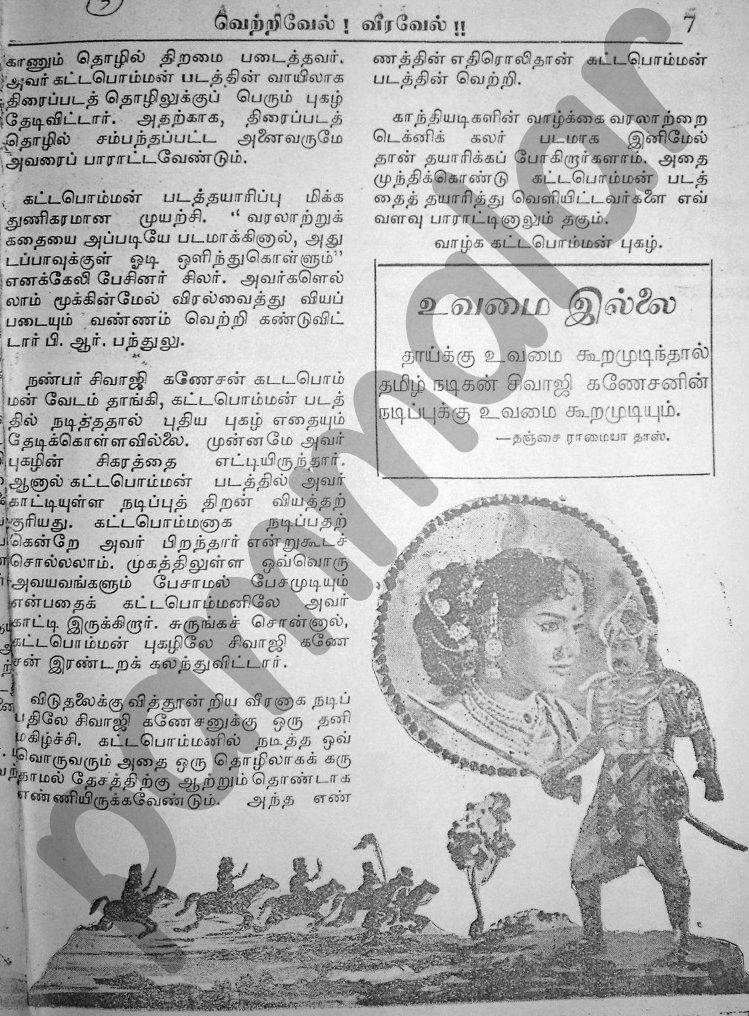 5
வெற்றிவேல் ! வீரவேல் !!
7
காணும் தொழில் திறமை படைத்தவர்.
அவர் கட்டபொம்மன் படத்தின் வாயிலாக
திரைப்படத் தொழிலுக்குப் பெரும் புகழ்
தேடிவிட்டார். அதற்காக, திரைப்படத்
தொழில் சம்பந்தப்பட்ட அனைவருமே
அவரைப் பாராட்டவேண்டும்.
கட்டபொம்மன் படத்தயாரிப்பு மிக்க
துணிகரமான முயற்சி. “வரலாற்றுக்
கதையை அப்படியே படமாக்கினால், அது
டப்பாவுக்குள் ஓடி ஒளிந்துகொள்ளும்”
எனக்கேலி பேசினர் சிலர். அவர்களெல்
லாம் மூக்கின்மேல் விரல்வைத்து வியப்
படையும் வண்ணம் வெற்றி கண்டுவிட்
டார் பி. ஆர். பந்துலு.
நண்பர் சிவாஜி கணேசன் கட்டபொம்
மன் வேடம் தாங்கி, கட்டபொம்மன் படத்
தில் நடித்ததால் புதிய புகழ் எதையும்
தேடிக்கொள்ளவில்லை. முன்னமே அவர்
புகழின் சிகரத்தை எட்டியிருந்தார்.
ஆனால் கட்டபொம்மன் படத்தில் அவர்
காட்டியுள்ள நடிப்புத் திறன் வியத்தற்
குரியது. கட்டபொம்மனாக நடிப்பதற்
கென்றே அவர் பிறந்தார் என்றுகூடச்
சொல்லலாம். முகத்திலுள்ள ஒவ்வொரு
அவயவங்களும் பேசாமல் பேசமுடியும்
என்பதைக் கட்டபொம்மனிலே அவர்
காட்டி இருக்கிறார். சுருங்கச் சொன்னால்,
கட்டபொம்மன் புகழிலே சிவாஜி கணே
சன் இரண்டறக் கலந்துவிட்டார்.
விடுதலைக்கு வித்தூன்றிய வீரனாக நடிப்
பதிலே சிவாஜி கணேசனுக்கு ஒரு தனி
மகிழ்ச்சி. கட்டபொம்மனில் நடித்த ஒவ்
வொருவரும் அதை ஒரு தொழிலாகக் கரு
தாமல் தேசத்திற்கு ஆற்றும் தொண்டாக
எண்ணியிருக்கவேண்டும். அந்த எண்
ணத்தின் எதிரொலிதான் கட்டபொம்மன்
படத்தின் வெற்றி.
காந்தியடிகளின் வாழ்க்கை வரலாற்றை
டெக்னிக் கலர் படமாக இனிமேல்
தான் தயாரிக்கப் போகிறார்களாம். அதை
முந்திக்கொண்டு கட்டபொம்மன் படத்
தைத் தயாரித்து வெளியிட்டவர்களை எவ்
வளவு பாராட்டினாலும் தகும்.
வாழ்க கட்டபொம்மன் புகழ்.
உவமை இல்லை
தாய்க்கு உவமை கூறமுடிந்தால்
தமிழ் நடிகன் சிவாஜி கணேசனின்
நடிப்புக்கு உவமை கூறமுடியும்.
—தஞ்சை ராமையா தாஸ்.
pammalar